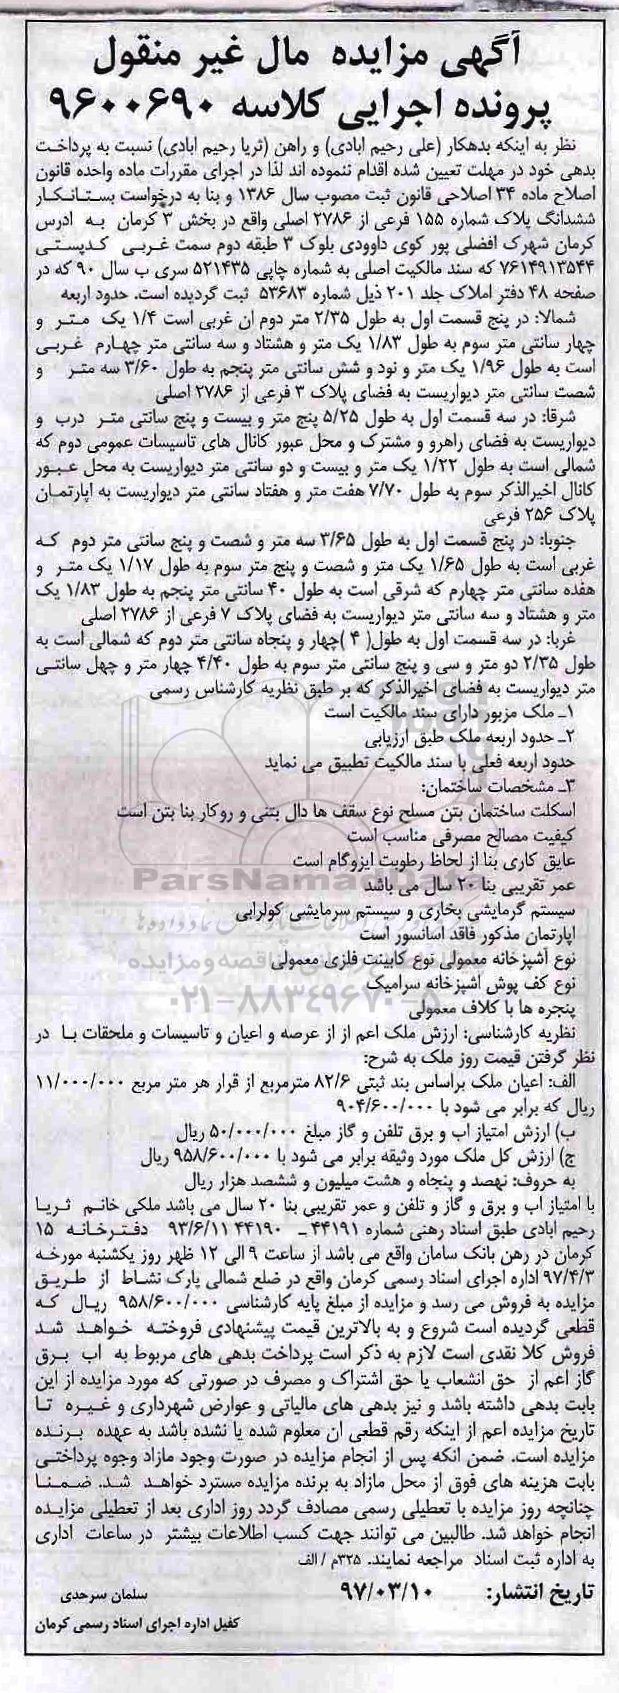 آگهی مزایده مال غیر منقول
پرونده اجرایی کلاسه ۹۶۰۰۶۹۰
نظر به اینکه بدهکار (علی رحیم ابادی) و راهن (ثریا رحیم ابادی) نسبت به پرداخت
بدهی خود در مهلت تعیین شده اقدام ننموده اند لذا در اجرای مقررات ماده واحده قانون
اصلاح ماده ۳۴ اصلاحی قانون ثبت مصوب سال ۱۳۸۶ و بنا به درخواست بستانکار
ششدانگ پلاک شماره ۱۵۵ فرعی از ۲۷۸۶ اصلی واقع در بخش ۳ کرمان به ادرس
کرمان شهرک افضلی پور کوی داوودی بلوک ۳ طبقه دوم سمت غربی کدپستی
۷۶۱۴۹۱۳۵۴۴ که سند مالکیت اصلی به شماره چاپی ۵۲۱۴۳۵ سری ب سال ۹۰ که در
صفحه ۴۸ دفتر املاک جلد ۲۰۱ ذیل شماره ۵۳۶۸۳ ثبت گردیده است. حدود اربعه
شمالا: در پنج قسمت اول به طول ۲/۳۵ متر دوم ان غربی است ۱/۴ یک متر و
چهار سانتی متر سوم به طول ۱/۸۳ یک متر و هشتاد و سه سانتی متر چهارم غربی
است به طول ۱/۹۶ یک متر و نود و شش سانتی متر پنجم به طول ۳/۶۰ سه متر و
شصت سانتی متر دیواریست به فضای پلاک ۳ فرعی از ۲۷۸۶ اصلی
شرقا: در سه قسمت اول به طول ۵/۲۵ پنج متر و بیست و پنج سانتی متر درب و
دیواریست به فضای راهرو و مشترک و محل عبور کانال های تاسیسات عمومی دوم که
شمالی است به طول ۱/۲۲ یک متر و بیست و دو سانتی متر دیواریست به محل عبور
کانال اخیرالذکر سوم به طول ۷/۷۰ هفت متر و هفتاد سانتی متر دیواریست به اپارتمان
پلاک ۲۵۶ فرعی
جنوبا: در پنج قسمت اول به طول ۳/۶۵ سه متر و شصت و پنج سانتی متر دوم که
غربی است به طول ۱/۶۵ یک متر و شصت و پنج متر سوم به طول ۱/۱۷ یک متر و
هفده سانتی متر چهارم که شرقی است به طول ۴۰ سانتی متر پنجم به طول ۱/۸۳ یک
متر و هشتاد و سه سانتی متر دیواریست به فضای پلاک ۷ فرعی از ۲۷۸۶ اصلی
غربا: در سه قسمت اول به طول( ۴ )چهار و پنجاه سانتی متر دوم که شمالی است به
طول ۲/۳۵ دو متر و سی و پنج سانتی متر سوم به طول ۴/۴۰ چهار متر و چهل سانتی
متر دیواریست به فضای اخیرالذکر که بر طبق نظریه کارشناس رسمی
۱ـ ملک مزبور دارای سند مالکیت است
۲ـ حدود اربعه ملک طبق ارزیابی
حدود اربعه فعلی با سند مالکیت تطبیق می نماید
۳ـ مشخصات ساختمان:
اسکلت ساختمان بتن مسلح نوع سقف ها دال بتنی و روکار بنا بتن است
کیفیت مصالح مصرفی مناسب است
عایق کاری بنا از لحاظ رطوبت ایزوگام است
ParsNamadData
عمر تقریبی بنا ۲۰ سال می باشد
سیستم گرمایشی بخاری و سیستم سرمایشی کولرابی
اپارتمان مذکور فاقد اسانسور است
نوع آشپزخانه معمولی نوع کابینت فلزی معمولی
نوع کف پوش اشپزخانه سرامیک
پنجره ها با کلاف معمولی
۰۲۱-۸۸۳۴۹۶۷۰-۵
نظریه کارشناسی: ارزش ملک اعم از از عرصه و اعیان و تاسیسات و ملحقات با در
نظر گرفتن قیمت روز ملک به شرح:
الف: اعیان ملک براساس بند ثبتی ۸۲/۶ مترمربع از قرار هر متر مربع ۱۱/۰۰۰/۰۰۰
ریال که برابر می شود با ۹۰۴/۶۰۰/۰۰۰
ب) ارزش امتیاز اب و برق تلفن و گاز مبلغ ۵۰/۰۰۰/۰۰۰ ریال
ج) ارزش کل ملک مورد وثیقه برابر می شود با ۹۵۸/۶۰۰/۰۰۰ ریال
به حروف: نهصد و پنجاه و هشت میلیون و ششصد هزار ریال
با امتیاز اب و برق و گاز و تلفن و عمر تقریبی بنا ۲۰ سال می باشد ملکی خانم ثریا
رحیم ابادی طبق اسناد رهنی شماره ۴۴۱۹۱ ـ ۴۴۱۹۰ ۹۳/۶/۱۱ دفترخانه ۱۵
کرمان در رهن بانک سامان واقع می باشد از ساعت ۹ الی ۱۲ ظهر روز یکشنبه مورخه
۹۷/۴/۳ اداره اجرای اسناد رسمی کرمان واقع در ضلع شمالی پارک نشاط از طریق
مزایده به فروش می رسد و مزایده از مبلغ پایه کارشناسی ۹۵۸/۶۰۰/۰۰۰ ریال که
قطعی گردیده است شروع و به بالاترین قیمت پیشنهادی فروخته خواهد شد
فروش کلا نقدی است لازم به ذکر است پرداخت بدهی های مربوط به اب برق
گاز اعم از حق انشعاب یا حق اشتراک و مصرف در صورتی که مورد مزایده از این
بابت بدهی داشته باشد و نیز بدهی های مالیاتی و عوارض شهرداری و غیره تا
تاریخ مزایده اعم از اینکه رقم قطعی ان معلوم شده یا نشده باشد به عهده برنده
مزایده است. ضمن انکه پس از انجام مزایده در صورت وجود مازاد وجوه پرداختی
بابت هزینه های فوق از محل مازاد به برنده مزایده مسترد خواهد شد. ضمنا
چنانچه روز مزایده با تعطیلی رسمی مصادف گردد روز اداری بعد از تعطیلی مزایده
انجام خواهد شد. طالبین می توانند جهت کسب اطلاعات بیشتر در ساعات اداری
به اداره ثبت اسناد مراجعه نمایند. ۳۲۵م / الف
تاریخ انتشار: ۹۷/۰۳/۱۰
سلمان سرحدی
کفیل اداره اجرای اسناد رسمی کرمان